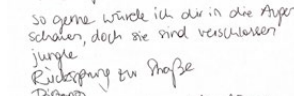 so gerne würde ich dir in die Augen
schauen, doch sie sind verschlossen
jungle
Rücksprung zur Straße